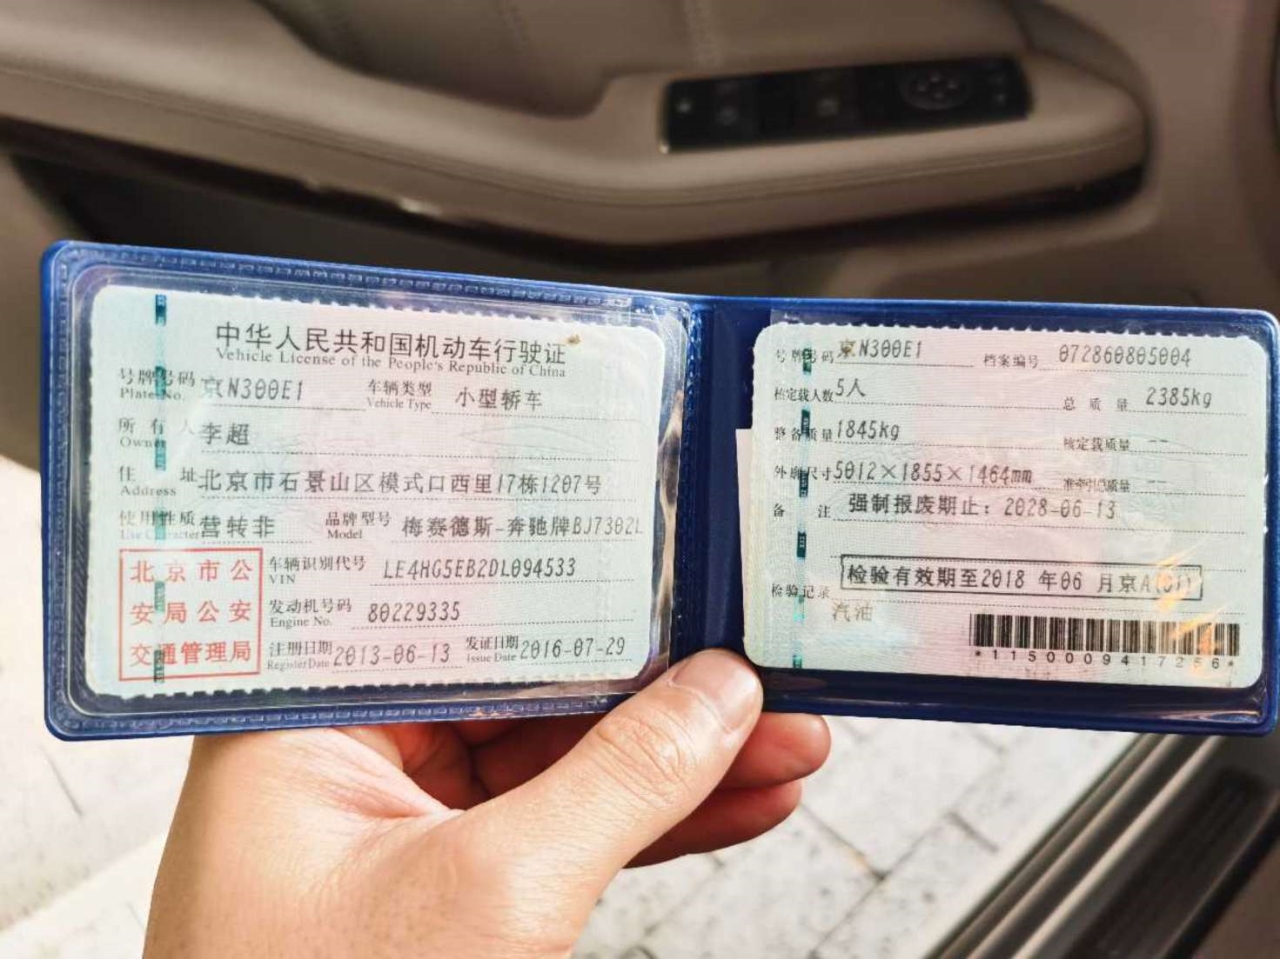 中华人民共和国机动车行驶证
Vehicle License of the People's Republic of China
号牌号码 京N300E1 车辆类型 小型轿车
Plate No. Vehicle Type
所有人 李超
Owner
住址 北京市石景山区模式口西里17栋1207号
Address
使用性质 营转非 品牌型号 梅赛德斯-奔驰牌BJ7302L
Use Character Model
北京市公
安局公安
交通管理局
车辆识别代号 LE4HG5EB2DL094533
VIN
发动机号码 80229335
Engine No.
注册日期 2013-06-13 发证日期 2016-07-29
Register Date Issue Date
号牌号码 京N300E1 档案编号 072860805004
核定载人数 5人 总质量 2385kg
整备质量 1845kg 核定载质量 --
外廓尺寸 5012×1855×1464mm 准牵引总质量 --
备注 强制报废期止:2028-06-13
检验有效期至2018 年06 月京A(C1)
检验记录
汽油
*1150009417256*